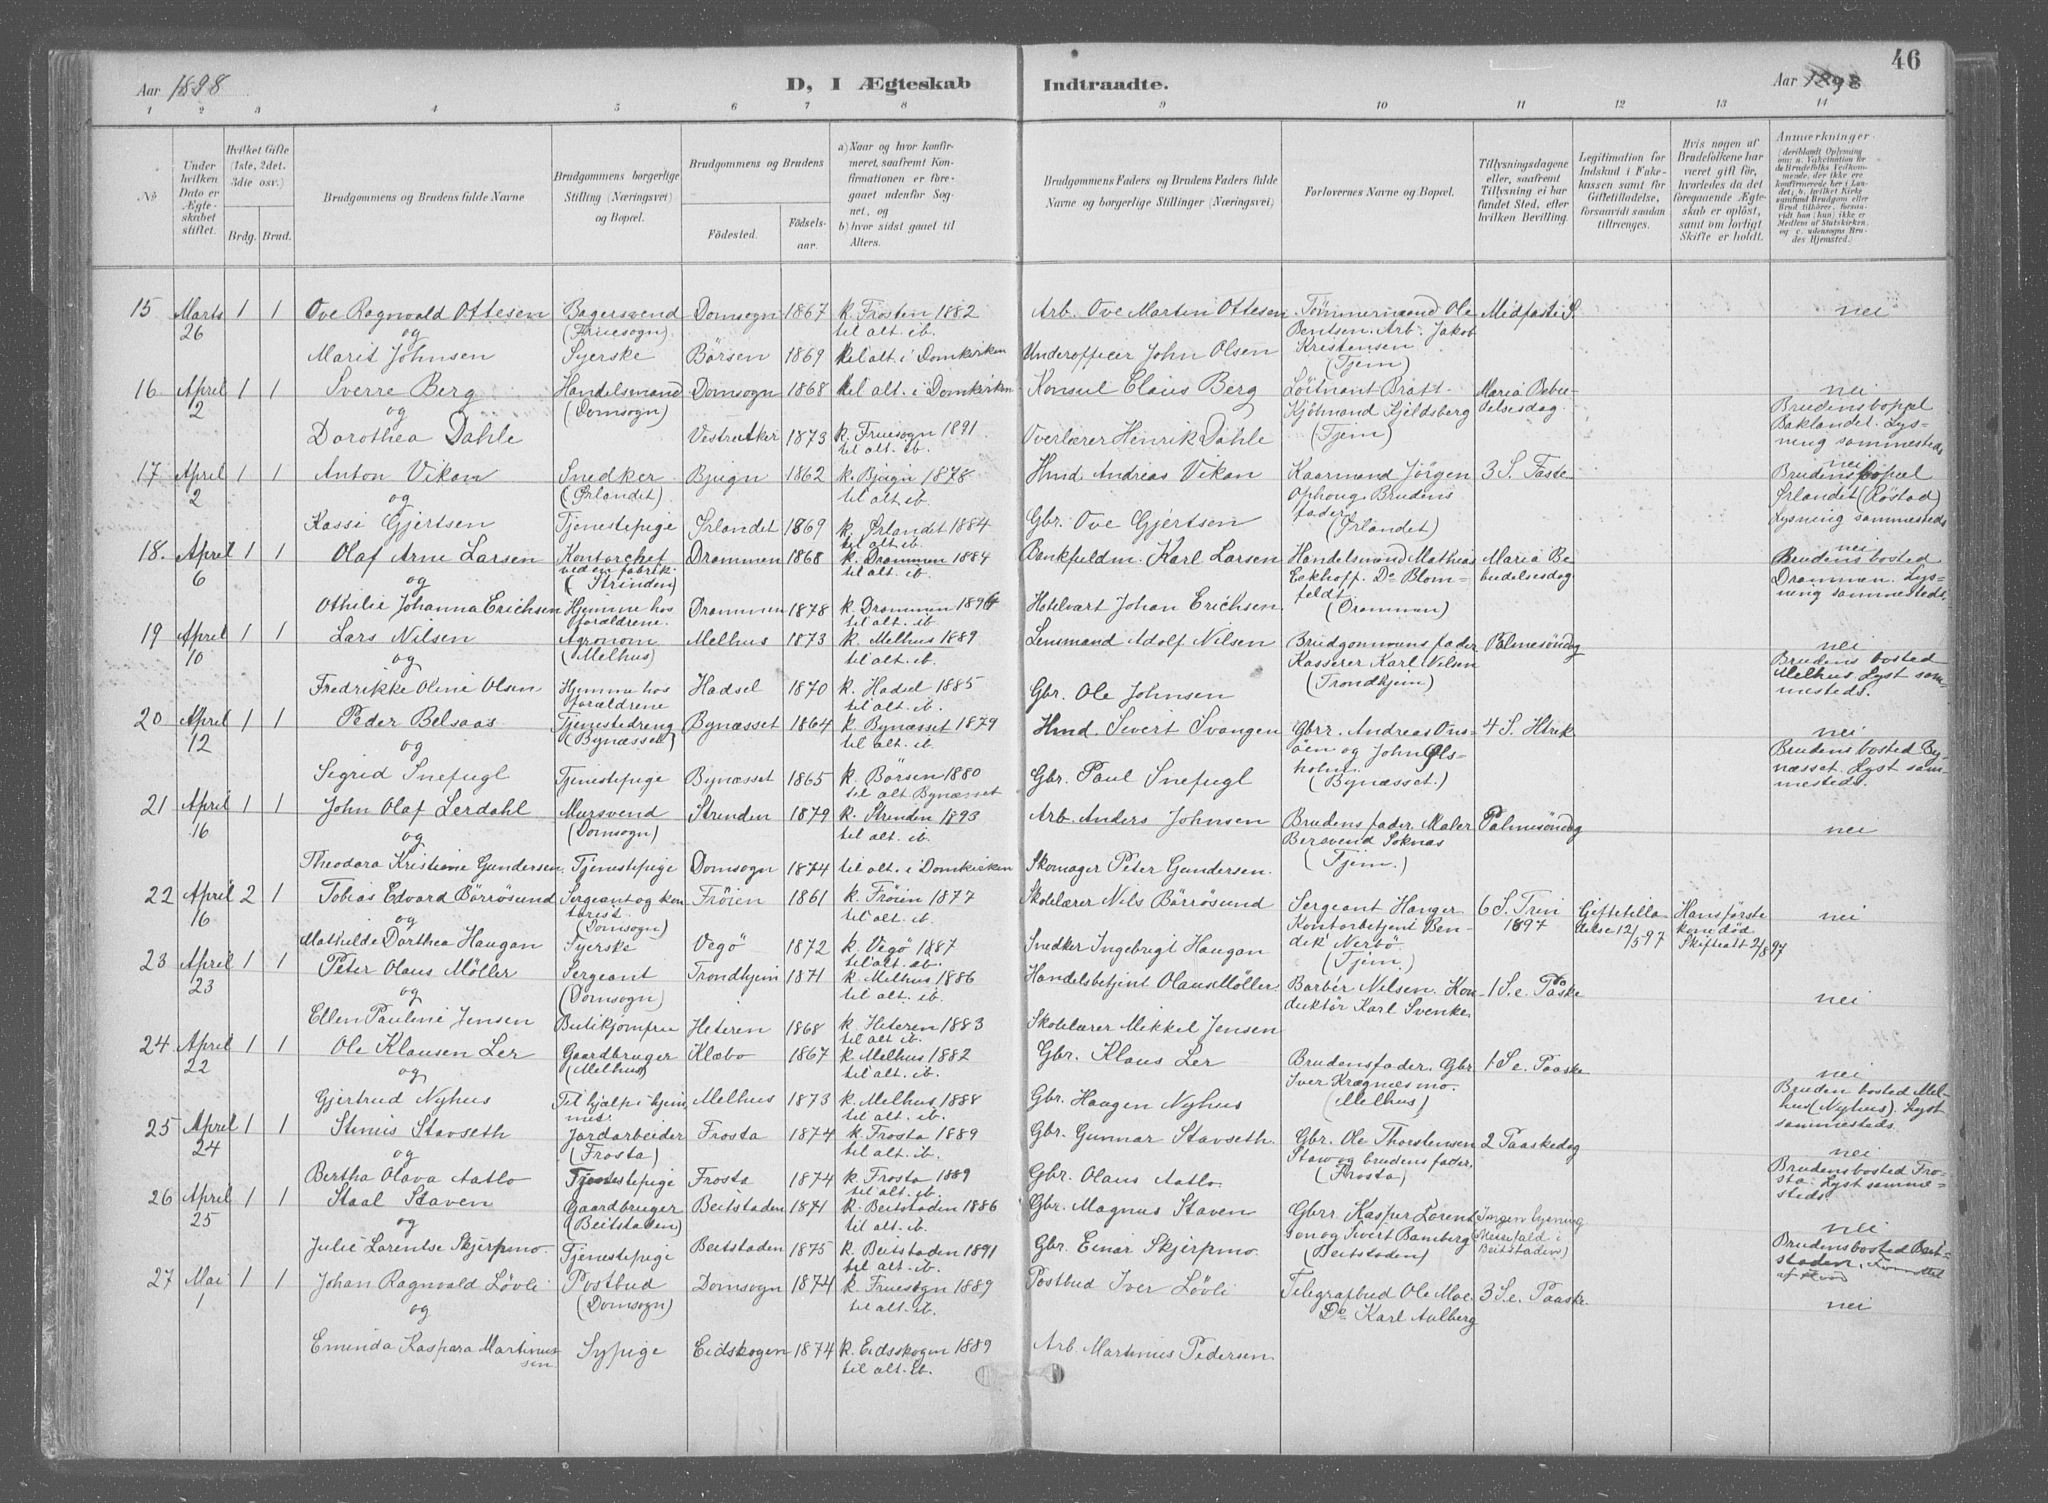 Aar 1898. D, I Ægteskab Indtraadte. Aar 1898 46
1 2 3 4 5 6 7 8 9 10 11 12 13 14
№
Under hvilken Dato er Ægteskabet stiftet.
Hvilket Gifte (1ste, 2det. 3die osv.)
Brdg. Brud.
Brudgommens og Brudens fulde Navne
Brudgommens borgerlige Stilling (Næringsvei) og Bopæl.
Brudgommens og Brudens
Fødested. Fødselsaar.
a) Naar og hvor konfirmeret, saafremt Konfirmationen er foregaaet udenfor Sognet, og
b) hvor sidst gaaet til Alters.
Brudgommens Faders og Brudens Faders fulde Navne og borgerlige Stillinger (Næringsvei)
Forlovernes Navne og Bopæl.
Tillysningsdagene eller, saafremt Tillysning ei har fundet Sted, efter hvilken Bevilling.
Legitimation for Indskud i Enkekassen samt for Giftetilladelse, forsaavidt saadan tiltrænges.
Hvis nogen af Brudefolkene har været gift før, hvorledes da det foregaaende Ægteskab er opløst, samt om lovligt Skifte er holdt.
Anmærkninger
15 Marts 26 1 1 Ove Ragnvald Ottesen Bagersvend (Fruesogn) Domsogn 1867 k. Frosten 1882 til alt. ib. Arb. Ove Martin Ottesen Tømmermand Ole Bentsen. Arb. Jakob Kristensen (Tjem) Midfaste S. nei
og
Marit Johnsen Syerske Børsen 1869 til alt. i Domkirken Underofficer John Olsen
16 April 2 1 1 Sverre Berg Handelsmand (Domsogn) Domsogn 1868 til alt. i Domkirken Konsul Claus Berg Løitnant Bratt Kjøbmand Kjeldsberg (Tjem) Maria Bebudelsesdag nei Brudens boppel Baklandet. Lysning sammesteds
og
Dorothea Dahle Vestre Aker 1873 k. Fruesogn 1891 til alt. ib. Overlærer Henrik Dahle
17 April 2 1 1 Anton Vikan Snedker (Ørlandet) Bjugn 1862 k. Bjugn 1878 til alt. ib. Hmd Andreas Vikan Kaarmand Jørgen Ophoug. Brudens fader (Ørlandet) 3 S. Faste nei Brudens bopel Ørlandet (Røstad) Lysning sammesteds
og
Kassi Gjertsen Tjenestepige Ørlandet 1869 k. Ørlandet 1884 til alt. ib. Gbr. Ove Gjertsen
18. April 6 1 1 Olaf Arne Larsen Kontorchef ved en fabrik. (Strinden) Drammen 1868 k. Drammen 1884 til alt. ib. Bankfuldm. Karl Larsen Handelsmand Mathias Eckhoff. Do Blomfeldt (Drammen) Maria Bebudelsesdag nei Brudens bosted Drammen. Lysning sammesteds.
og
Othilie Johanna Erichsen Hjemme hos forældrene. Drammen 1878 k. Drammen 1894 til alt. ib. Hotelvært Johan Erichsen
19 April 10 1 1 Lars Nilsen Agronom (Melhus) Melhus 1873 k. Melhus 1889 til alt. ib. Lensmand Adolf Nilsen Brudgommens fader Kasserer Karl Nilsen (Trondhjem) Palmesøndag nei Brudens bosted Melhus Lyst sammesteds.
og
Fredrikke Oline Olsen Hjemme hos forældrene Hadsel 1870 k. Hadsel 1885 til alt. ib. Gbr. Ole Johnsen
20 April 12 1 1 Peder Belsaas Tjenestedreng (Bynæsset) Bynæsset 1864 k. Bynæsset 1879 til alt. ib. Hmd. Sivert Svangen Gbrr. Andreas Onsøien og John Olsholm. (Bynæsset.) 4 S. Htrek nei. Brudens bosted Bynæsset. Lyst sammesteds.
og
Sigrid Snefugl Tjenestepige Bynæsset 1865 k. Børsen 1880 til alt Bynæsset Gbr. Paul Snefugl
21 April 16 1 1 John Olaf Lerdahl Mursvend (Domsogn) Strinden 1879 k. Strinden 1893 til alt. ib. Arb. Anders Johnsen Brudens fader. Maler Berevend Soknas (Tjem.) Palmesøndag nei
og
Theodora Kristine Gundersen. Tjenestepige Domsogn 1874 til alt. i Domkirken Skomager Peter Gundersen.
22 April 16 2 1 Tobias Edvard Børrøsund Sergeant og kontorist. (Domsogn) Frøien 1861 k. Frøien 1877 til alt. ib. Skolelærer Nils Børrøsund Sergeant Hanger Kontorbetjent Bendik Nerbö. (Tjem.) 6 S. Trin 1897 Giftetilladelse 12/5 97 Hans første kone død Skifteatt 2/8 97 nei
og
Mathilde Dorthea Haugan Syerske Vegø 1872 k. Vegø 1887 til alt. ib. Snedker Ingebrigt Haugan
23 April 23 1 1 Peter Olaus Möller Sergeant (Domsogn) Trondhjem 1871 k. Melhus 1886 til alt. ib. Handelsbetjent Olaus Möller. Barber Nilsen. Konduktør Karl Svenke. 1 S. e. Paaske nei
og
Ellen Pauline Jensen Butikjomfru Heteren 1868 k. Heteren 1883 til alt. ib. Skolelærer Mikkel Jensen
24 April 22 1 1 Ole Klausen Ler Gaardbruger (Melhus) Klæbo 1867 k. Melhus 1882 til alt. ib. Gbr. Klaus Ler Brudens fader. Gbr Iver Krægnesmo. (Melhus) 1 S e. Paaske nei Bruden bosted Melhus (Nyhus). Lyst sammesteds.
og
Gjertrud Nyhus Til hjælp i hjemmet Melhus 1873 k. Melhus 1888 til alt. ib. Gbr. Haagen Nyhus
25 April 24 1 1 Stinius Stavseth Jordarbeider (Frosta) Frosta 1874 k. Frosta 1889 til alt. ib. Gbr. Gunnar Stavseth. Gbr. Ole Thorstensen Staw og brudens fader. (Frosta) 2 Paaskedag nei Brudens bosted Frosta. Lyst sammesteds
og
Bertha Olava Aatlo Tjenestepige Frosta 1874 k. Frosta 1889 til alt. ib. Gbr. Olaus Aatlo.
26 April 25 1 1 Staal Staven Gaardbruger (Beitstaden) Beitstaden 1871 k. Beitstaden 1886 til alt. ib. Gbr. Magnus Staven Gbrr. Kasper Lorentsen og Sivert Bamberg (Beitstaden) Ingen lysning i Beitstaden) nei Brudens bosted Beitstaden.
og
Julie Lorentse Skjerpmo. Tjenestepige Beitstaden 1875 k. Beitstaden 1891 til alt. ib. Gbr. Einar Skjerpmo.
27 Mai 1 1 1 Johan Ragnvald Løvli Postbud (Domsogn) Domsogn 1874 k. Fruesogn 1889 til alt. ib. Postbud Iver Løvli Telegrafbud Ole Moe. Do Karl Aalberg 3 S. e. Paaske. nei
og
Eminda Kaspara Martinussen Sypige Eidskogen 1874 k. Eidsskogen 1889 til alt. ib. Arb. Martinus Pedersen.